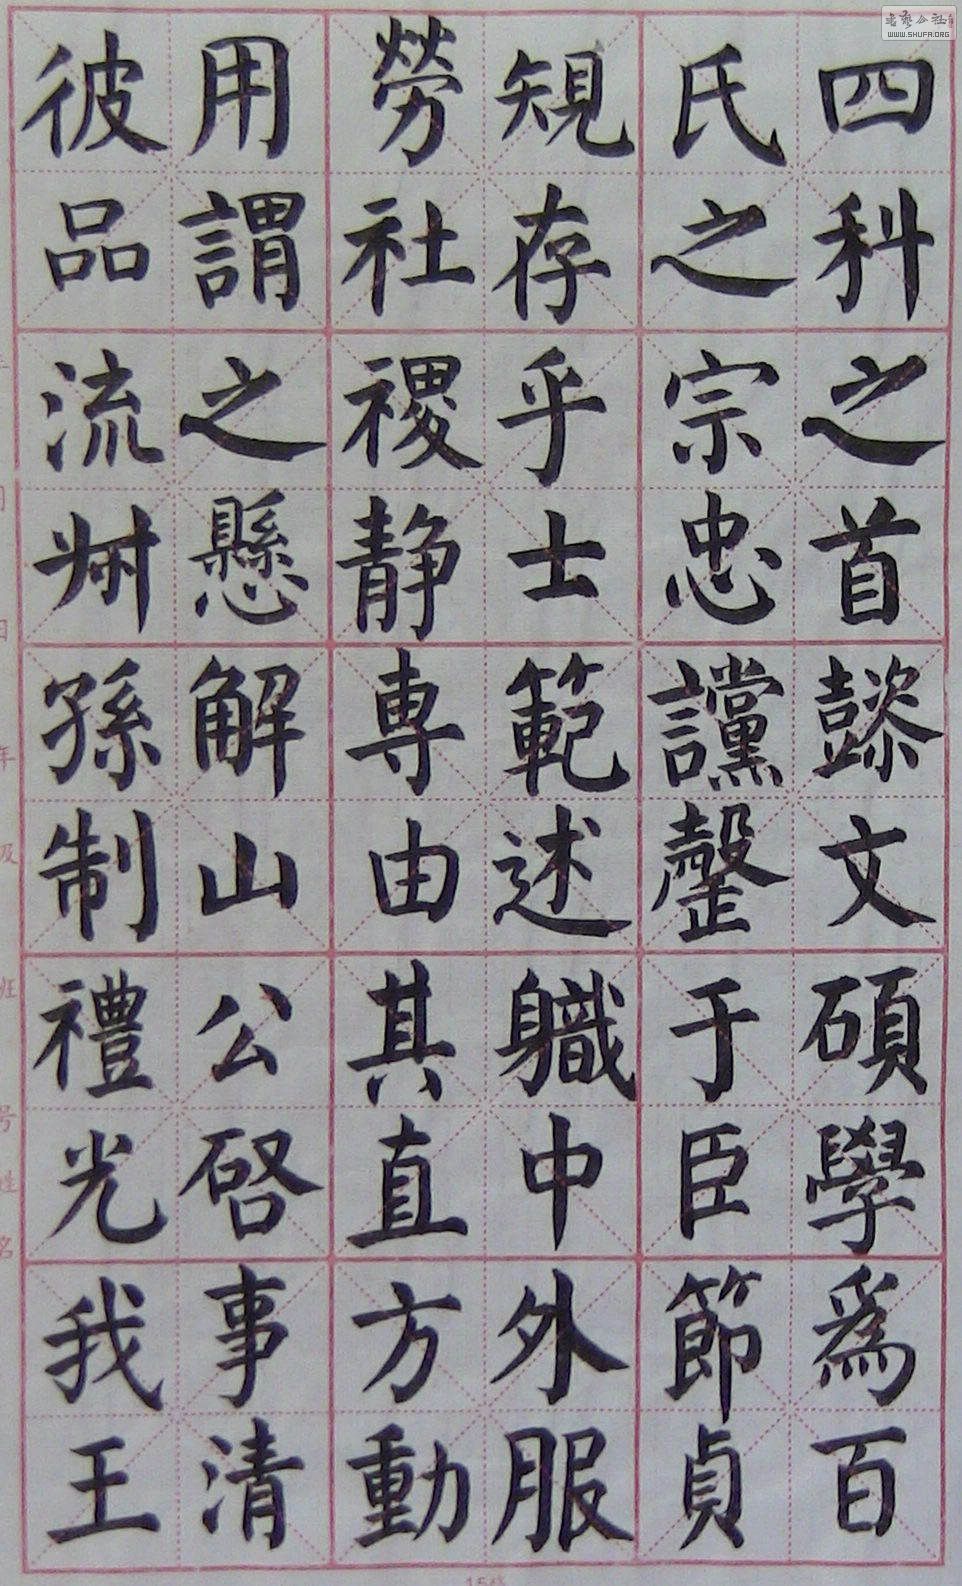 四科之首懿文碩學為百
氏之宗忠讜罄于臣節貞
規存乎士範述職中外服
勞社稷靜專由其直方動
用謂之懸解山公啓事清
彼品流叔孫制禮光我王
WWW.SHUFA.ORG